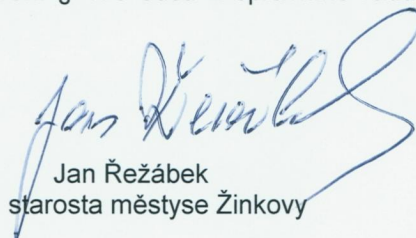 Jan Řežábek
Jan Řežábek
starosta městyse Žinkovy